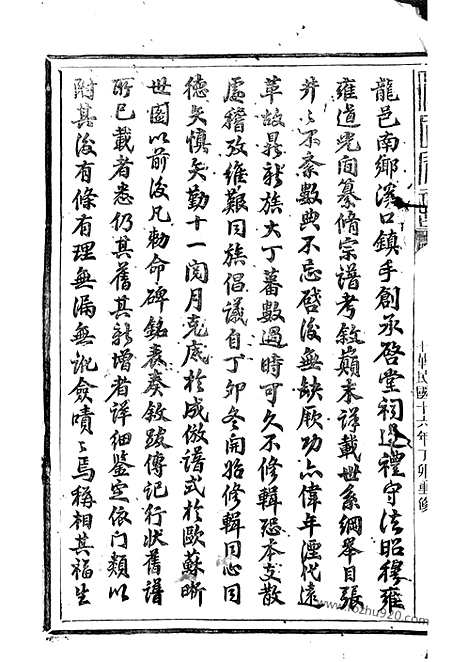 龍邑南鄉溪口鎮手創承啓堂祠遵禮守法昭穆雍
雍道光間纂脩宗譜考敘巔末詳載世系綱舉目張
井々不紊數典不忘啓後無缺厥功亦偉年湮代遠
革故鼎新族大丁蕃數過時可久不修輯恐本支散
處稽攷維艱同族倡議自丁卯冬開始修輯同心同
德矣慎矣勤十一閱月克底於成倣譜式於歐蘇晰
世圖以前後凡勅命碑銘表奏敘跋傳記行狀舊譜
所已載者悉仍其舊其新增者詳細鑒定依門類以
附其後有條有理無漏無訛僉嘖々焉稱相其福生
中華民國十六年丁卯重修
www.kozhu920.com